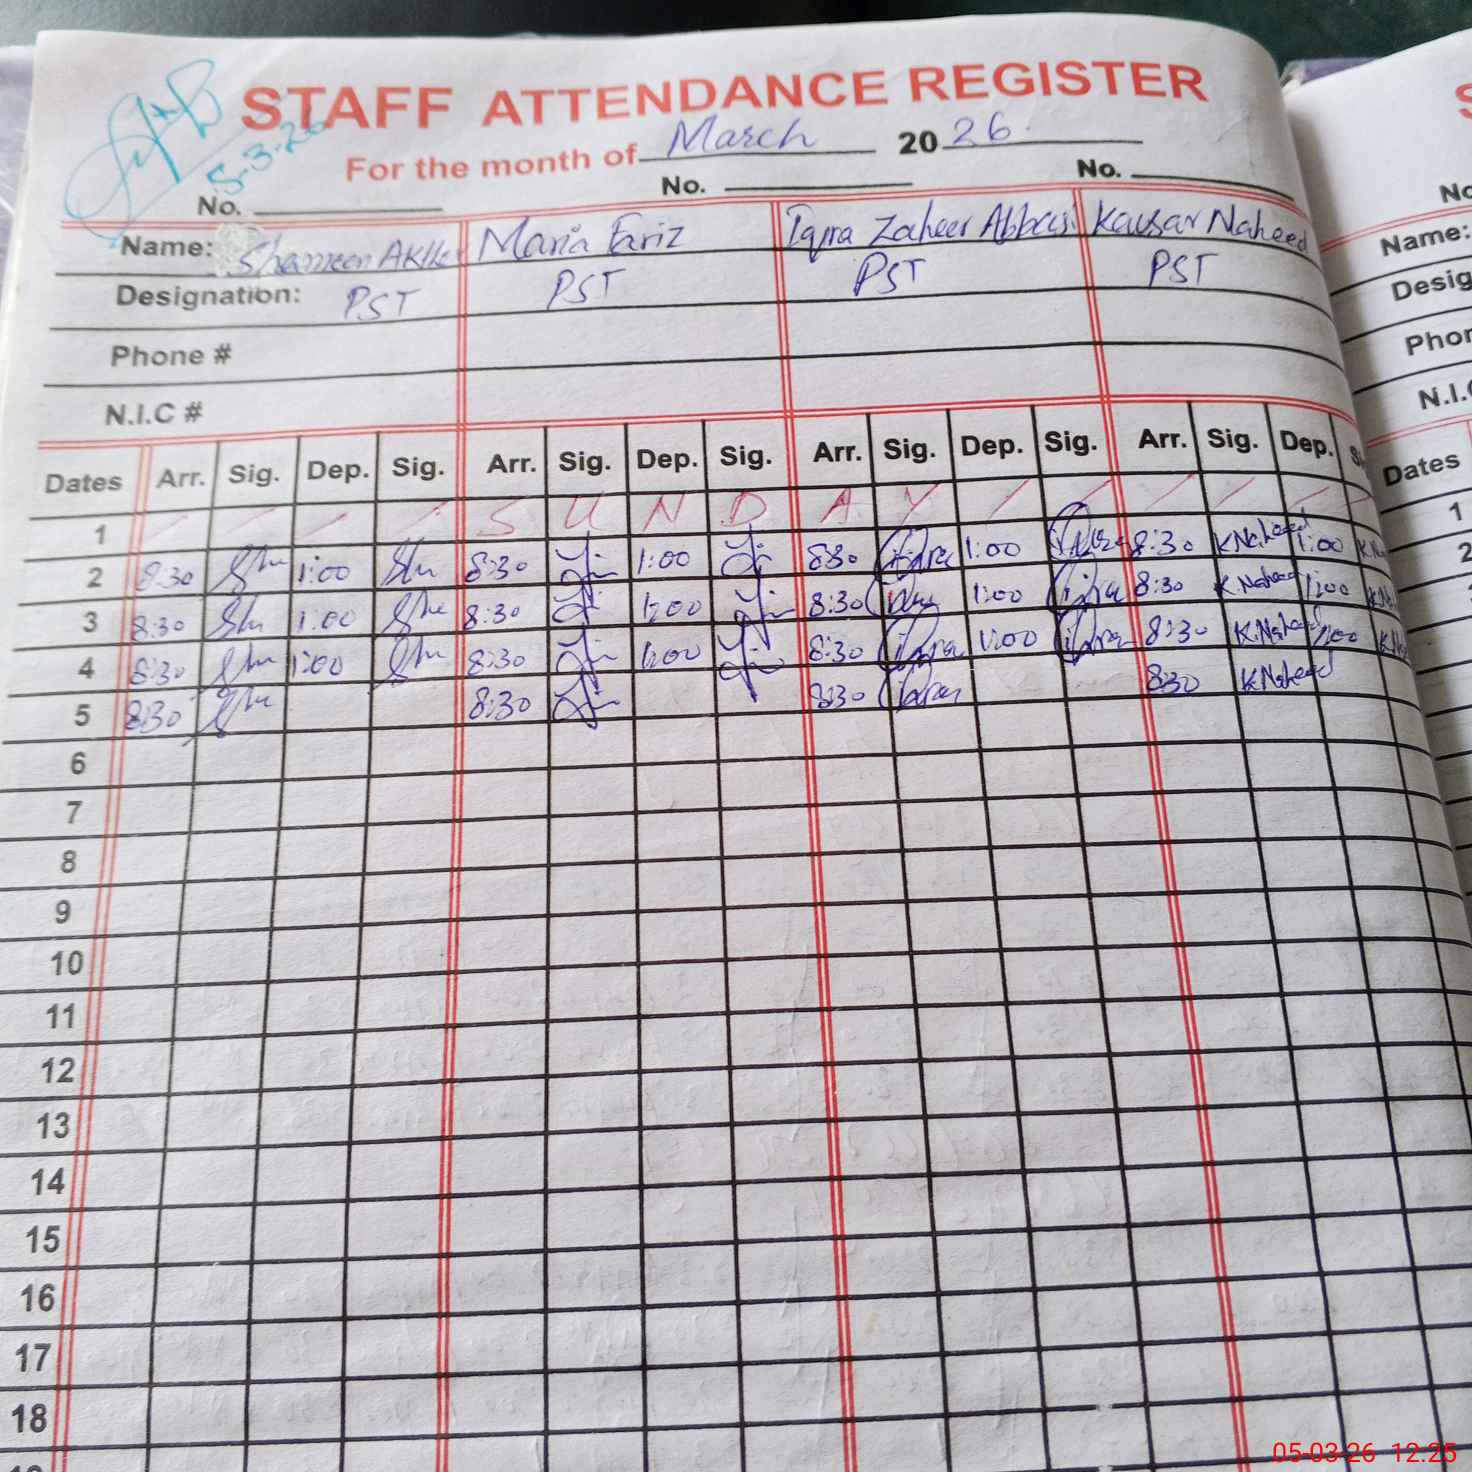 STAFF ATTENDANCE REGISTER
5-3-26
For the month of March 2026.
No. No. No.
Name: Shameen Akhter Maria Fariz Iqra Zaheer Abbasi Kausar Naheed
Designation: PST PST PST PST
Phone #
N.I.C #
Dates Arr. Sig. Dep. Sig. Arr. Sig. Dep. Sig. Arr. Sig. Dep. Sig. Arr. Sig. Dep.
1 S U N D A Y
2 8:30 Shu 1:00 Shu 8:30 1:00 8:30 Iqra 1:00 Iqra 8:30 K Naheed 1:00
3 8:30 Shu 1:00 Shu 8:30 1:00 8:30 Iqra 1:00 Iqra 8:30 K.Naheed 1:00
4 8:30 Shu 1:00 Shu 8:30 1:00 8:30 Iqra 1:00 Iqra 8:30 K.Naheed 1:00
5 8:30 Shu 8:30 8:30 Iqra 8:30 K Naheed
6
7
8
9
10
11
12
13
14
15
16
17
18
No
Name:
Desig
Phon
N.I.C
Dates
1
2
05-03-26 12:25